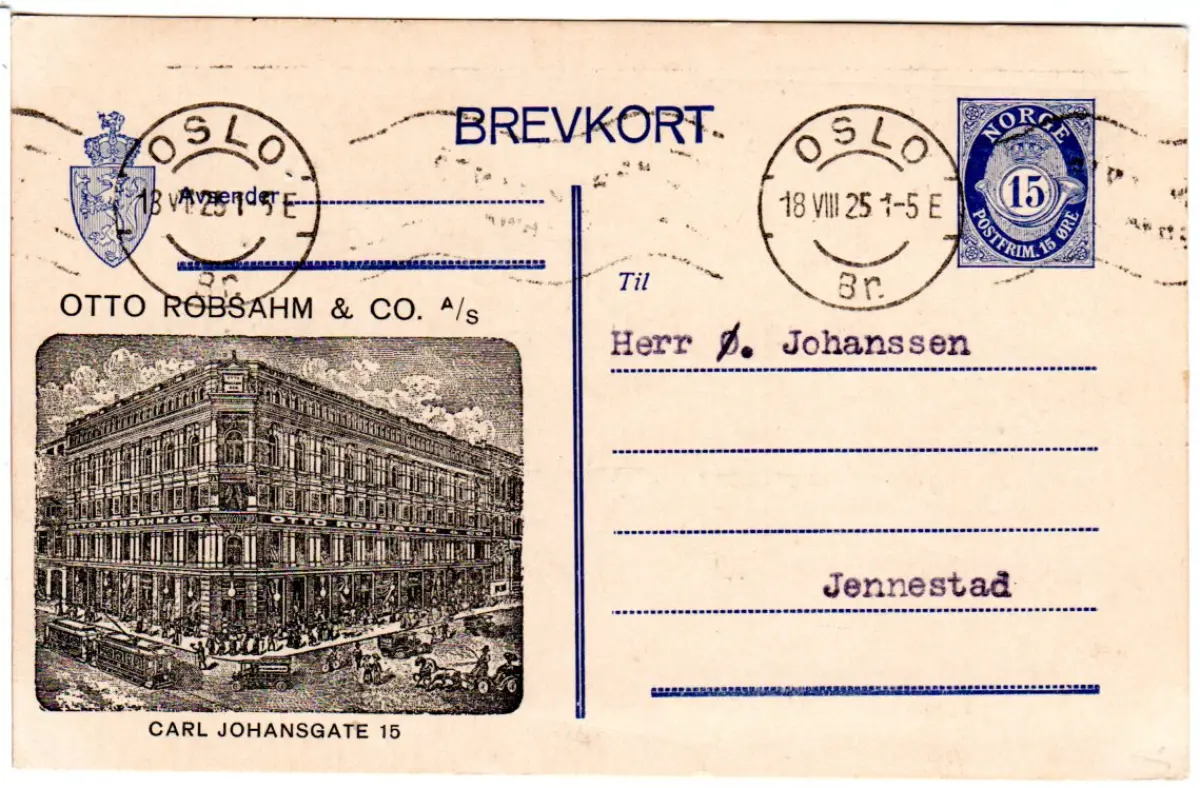 BREVKORT
OSLO
18 VIII 25 1-5 E
Br.
Avsender
OSLO
18 VIII 25 1-5 E
Br.
NORGE
15
POSTFRIM. 15 ØRE
Til
OTTO ROBSAHM & CO. A/S
Herr Ø. Johanssen
OTTO ROBSAHM & CO
OTTO ROBSAHM & CO.
Jennestad
CARL JOHANSGATE 15